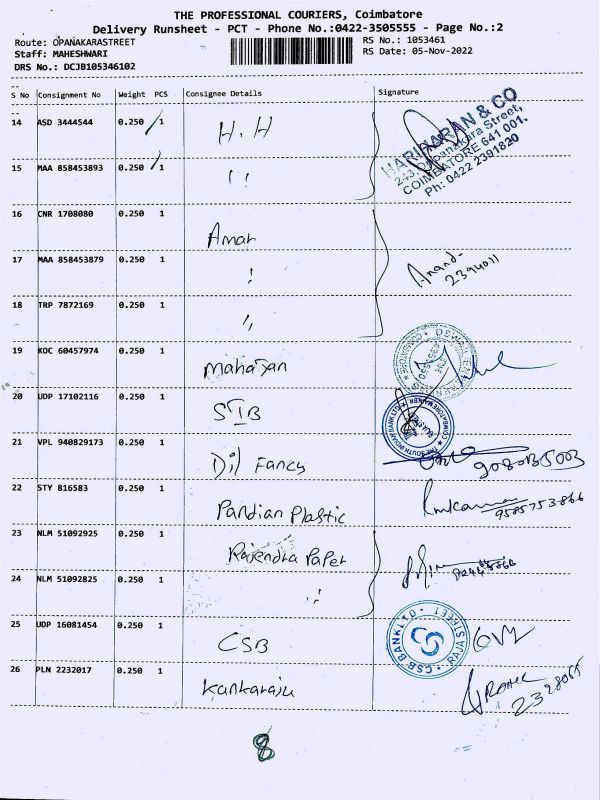 THE PROFESSIONAL COURIERS, Coimbatore
Delivery Runsheet - PCT - Phone No.:0422-3505555 - Page No.:2
Route: OPANAKARASTREET
RS No.: 1053461
Staff: MAHESHWARI
RS Date: 05-Nov-2022
DRS No.: DCJB105346102
S No Consignment No Weight PCS Consignee Details Signature
14 ASD 3444544 0.250 1 H.H
HARIHARAN & CO
243, Oppanakara Street,
COIMBATORE 641 001.
Ph: 0422 2391820
15 MAA 858453893 0.250 1 "
16 CNR 1708080 0.250 1 Amar
17 MAA 858453879 0.250 1 " Anand
2394011
18 TRP 7872169 0.250 1 "
19 KOC 60457974 0.250 1 Mahajan
20 UDP 17102116 0.250 1 SIB
THE SOUTH INDIAN BANK LTD
21 VPL 940829173 0.250 1 Dil Fancy
22 STY 816583 0.250 1 Pandian Plastic
9585753866
23 NLM 51092925 0.250 1 Rajendra Paper
24 NLM 51092825 0.250 1 "
25 UDP 16081454 0.250 1 CSB
CSB BANK LTD. RAJA STREET
26 PLN 2232017 0.250 1 Kankaraju
2398065
8